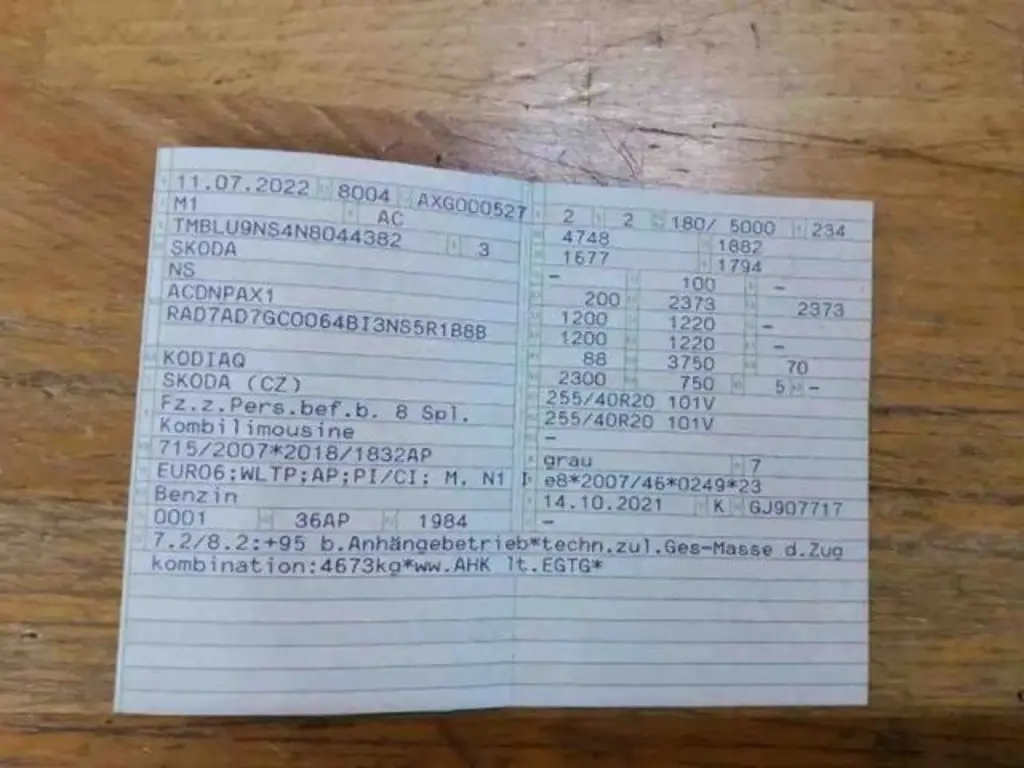 11.07.2022 8004 AXG000527
M1 AC
TMBLU9NS4N8044382 3
SKODA
NS
ACDNPAX1
RAD7AD7GC0064BI3NS5R1B8B
KODIAQ
SKODA (CZ)
Fz.z.Pers.bef.b. 8 Spl.
Kombilimousine
715/2007*2018/1832AP
EURO6;WLTP;AP;PI/CI; M, N1 I
Benzin
0001 36AP 1984
2 2 180/ 5000 234
4748 1882
1677 1794
- 100 -
200 2373 2373
1200 1220 -
1200 1220 -
88 3750 70
2300 750 5 -
255/40R20 101V
255/40R20 101V
-
grau 7
e8*2007/46*0249*23
14.10.2021 K GJ907717
-
7.2/8.2:+95 b.Anhängebetrieb*techn.zul.Ges-Masse d.Zug
kombination:4673kg*ww.AHK lt.EGTG*